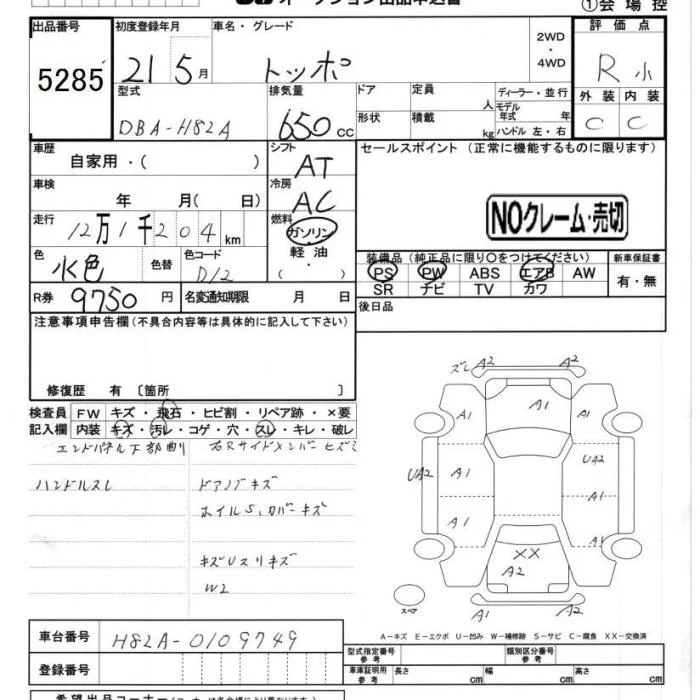 ①会場控
出品番号 初度登録年月 車名・グレード 2WD・4WD 評価点
5285 21 5月 トッポ R 小
型式 排気量 ドア 定員 人 ディーラー・並行 外装 内装
DBA-H82A 650 CC 形状 積載 kg モデル年式 年 ハンドル 左・右 C C
車歴 シフト セールスポイント (正常に機能するものに限ります)
自家用・( ) AT
車検 年 月( 日) 冷房 AC NOクレーム・売切
走行 12万1千204km 燃料 ガソリン・軽油
色 水色 色替 色コード D12 装備品(純正品に限り○をつけてください) 新車保証書
PS PW ABS エアB AW 有・無
SR ナビ TV カワ
R券 9750円 名変通知期限 月 日 後日品
注意事項申告欄(不具合内容等は具体的に記入して下さい)
修復歴 有 〔箇所 〕
検査員 FW キズ・飛石・ヒビ割・リペア跡・×要
記入欄 内装 キズ・汚レ・コゲ・穴・スレ・キレ・破レ
エンドパネル下部曲り 右Rサイドメンバー
ハンドルスレ ドアノブキズ
ホイルS、カバーキズ
W2
ズレ A2 A2
A1 A1
UA2 A1 UA2
A1 A1
A1
XX
A2
A1 A2
スペア
A-キズ E-エクボ U-凹み W-補修跡 S-サビ C-腐食 XX-交換済
車台番号 H82A-0109749
型式指定番号 参考 類別区分番号 参考
登録番号 車庫証明用 参考 長さ cm 幅 cm 高さ cm